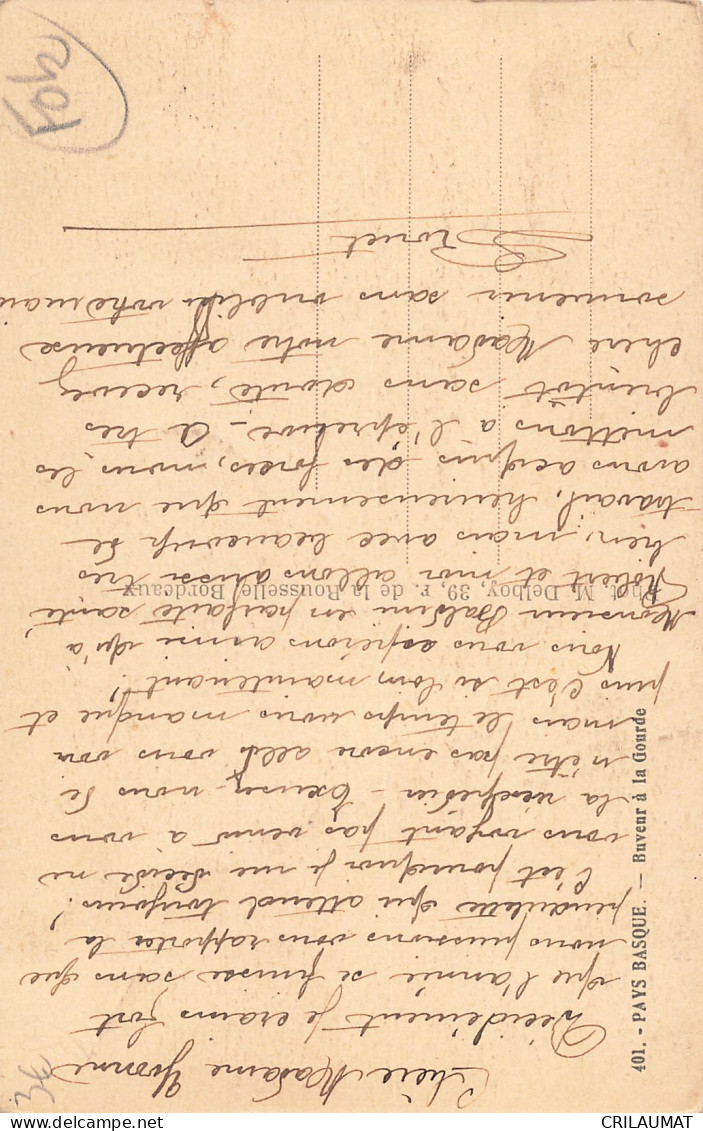 Chère Madame Yvonne
Décidément je crains fort
que l'année se finisse sans que
nous puissions vous rapporter la
pendulette qui attend toujours!
C'est pourquoi je me décide ne
vous voyant pas venir à vous
la réexpédier - Excusez-nous de
n'être pas encore allés vous voir
mais le temps nous manque et
puis c'est si loin maintenant!
Nous vous espérons ainsi qu'à
Monsieur en parfaite santé,
Robert et moi allons aussi très
bien, mais avec beaucoup de
travail, heureusement que nous
avons acquis des forces, nous les
mettons à l'épreuve - A très
bientôt sans doute, recevez
chère Madame notre affectueux
souvenir sans oublier votre mari
401. - PAYS BASQUE. — Buveur à la Gourde
Phot. M. Delboy, 39, r. de la Rousselle, Bordeaux
401
3€
CRILAUMAT